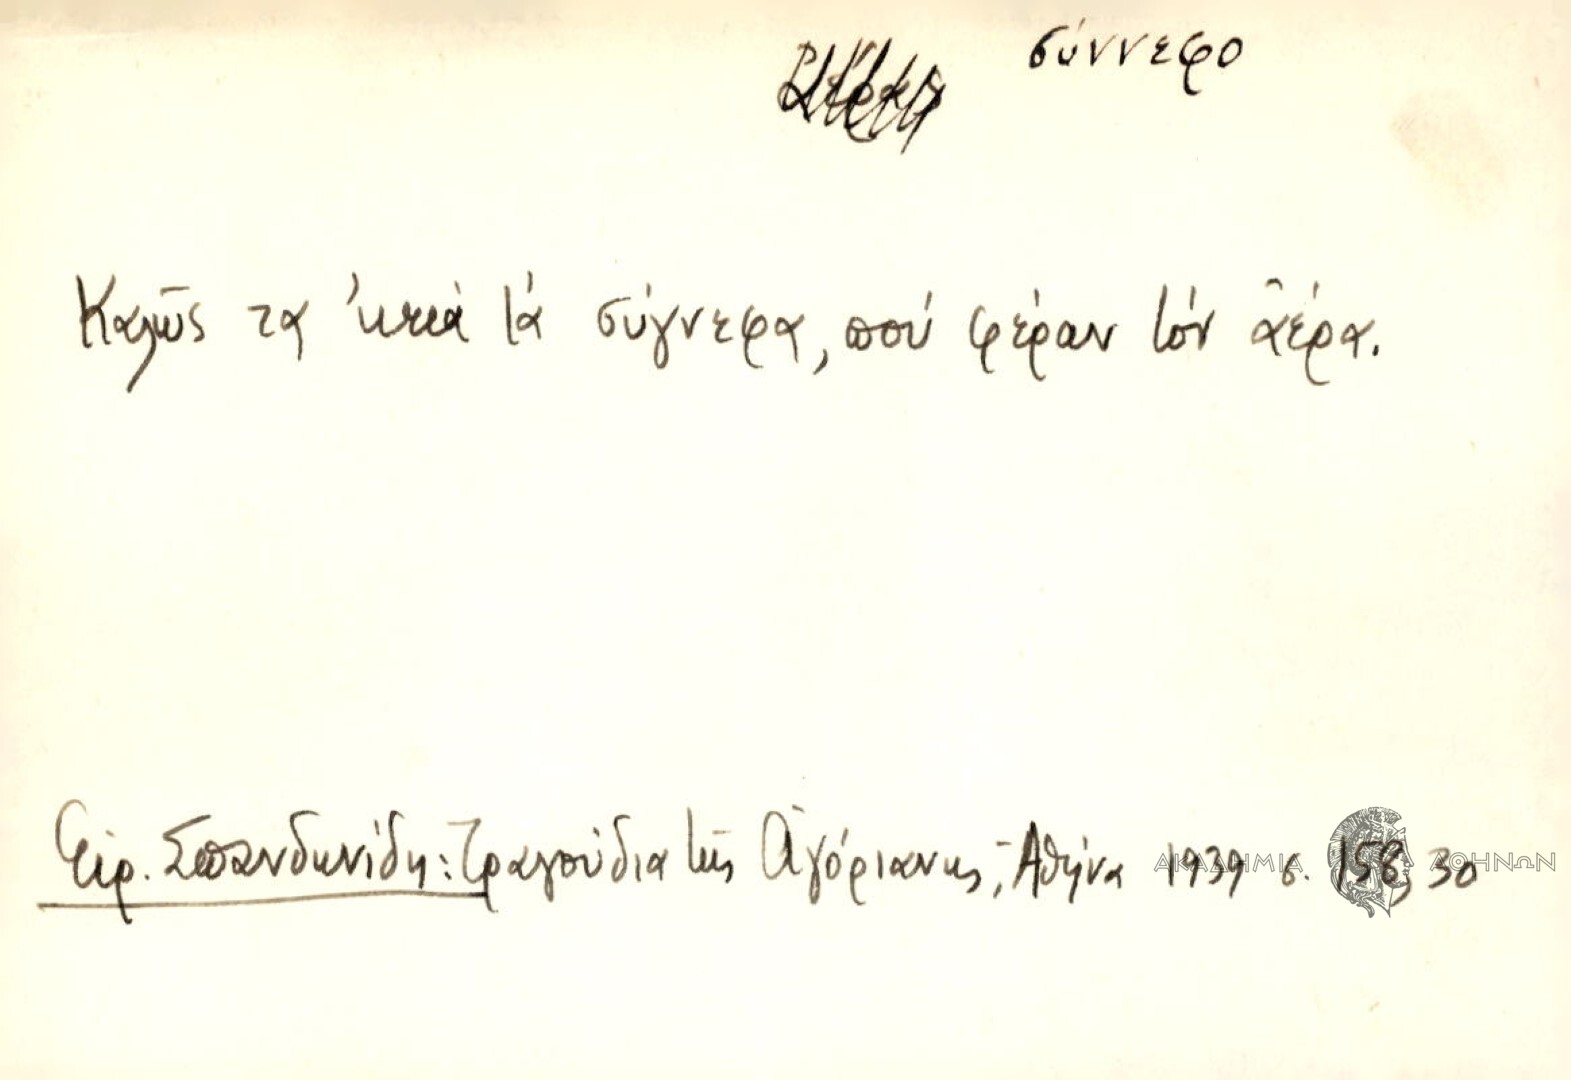 σύννεφο
Καλῶς τα τὰ σύγνεφα, πού φέραν τόν ἀέρα.
Εἰρ. Σπανδωνίδη: Τραγούδια τῆς Ἀγόριανης, Ἀθήνα 1939 σ. 158, 30
ΑΚΑΔΗΜΙΑ ΑΘΗΝΩΝ